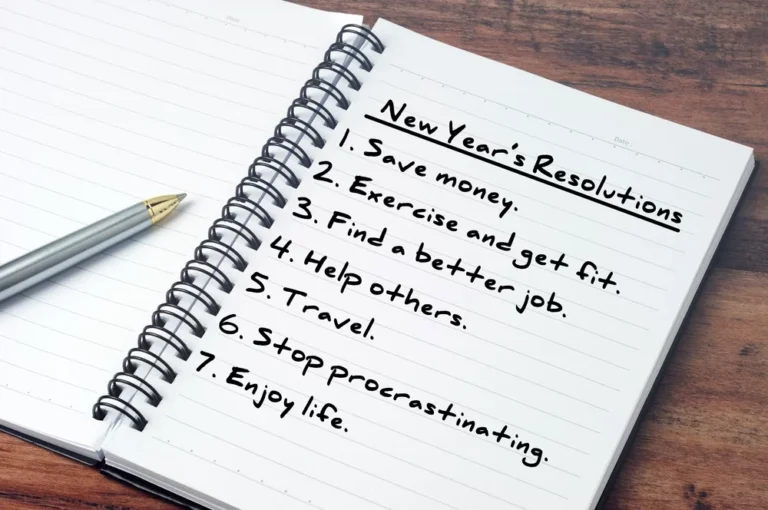 Date
Date
New Year's Resolutions
1. Save money.
2. Exercise and get fit.
3. Find a better job.
4. Help others.
5. Travel.
6. Stop procrastinating.
7. Enjoy life.